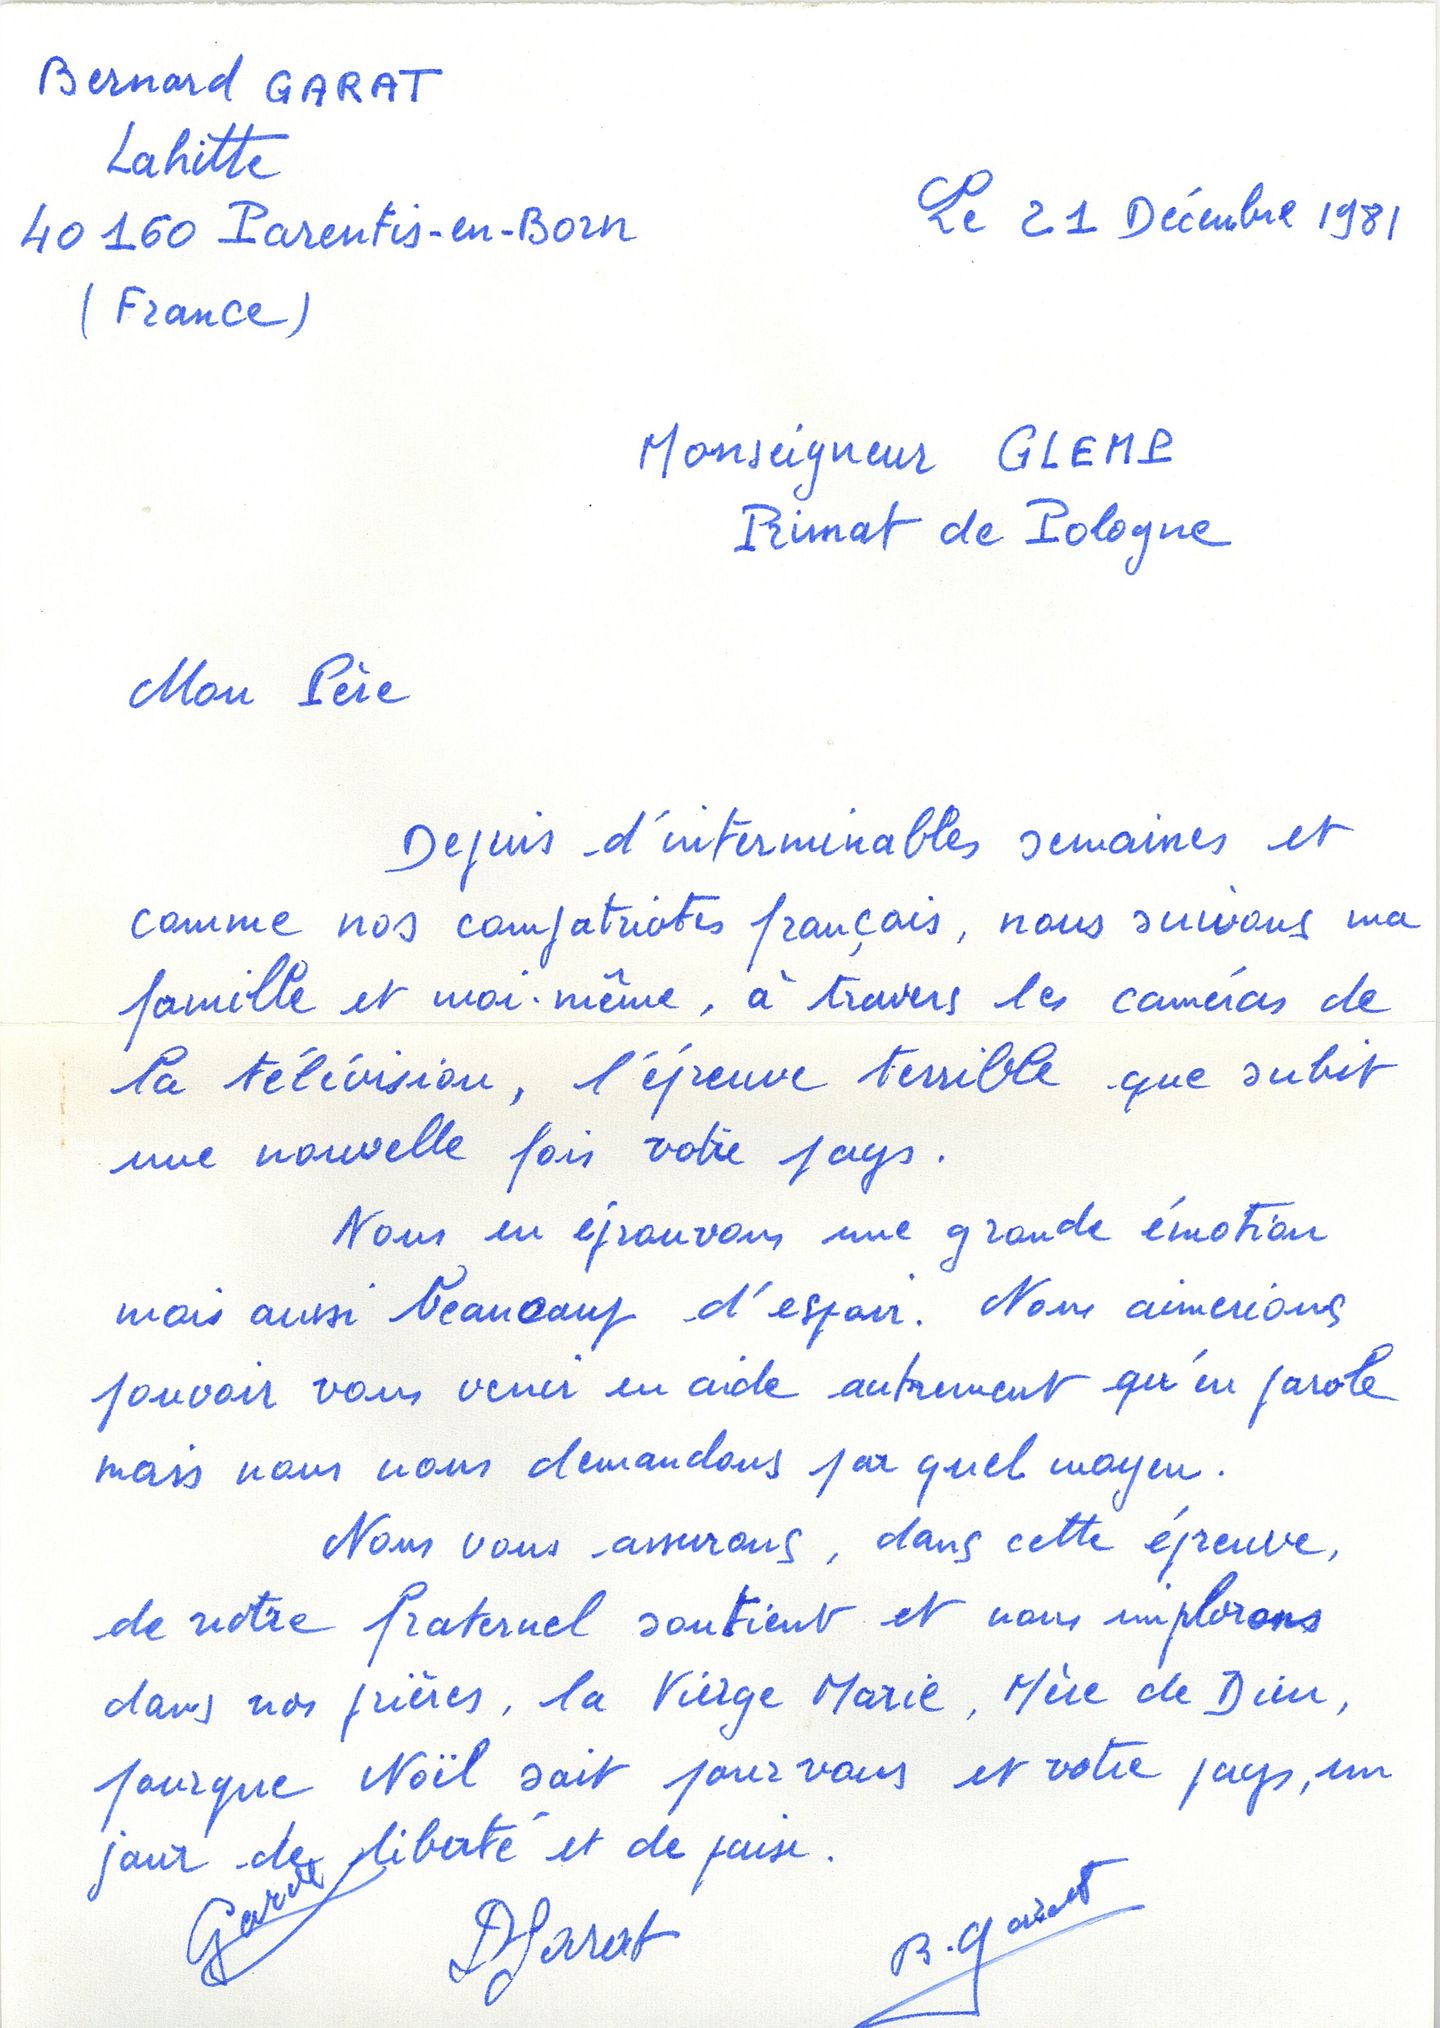 Bernard GARAT
Lahitte
40160 Parentis-en-Born
(France)
Le 21 Décembre 1981
Monseigneur GLEMP
Primat de Pologne
Mon Père
Depuis d'interminables semaines et
comme nos compatriotes français, nous suivons ma
famille et moi-même, à travers les caméras de
la télévision, l'épreuve terrible que subit
une nouvelle fois votre pays.
Nous en éprouvons une grande émotion
mais aussi beaucoup d'espoir. Nous aimerions
pouvoir vous venir en aide autrement qu'en parole
mais nous nous demandons par quel moyen.
Nous vous assurons, dans cette épreuve,
de notre fraternel soutient et nous implorons
dans nos prières, la Vièrge Marie, Mère de Dieu,
pourque Noël soit pour vous et votre pays, un
jour de liberté et de paix.
Garat
DGarat
B. Garat